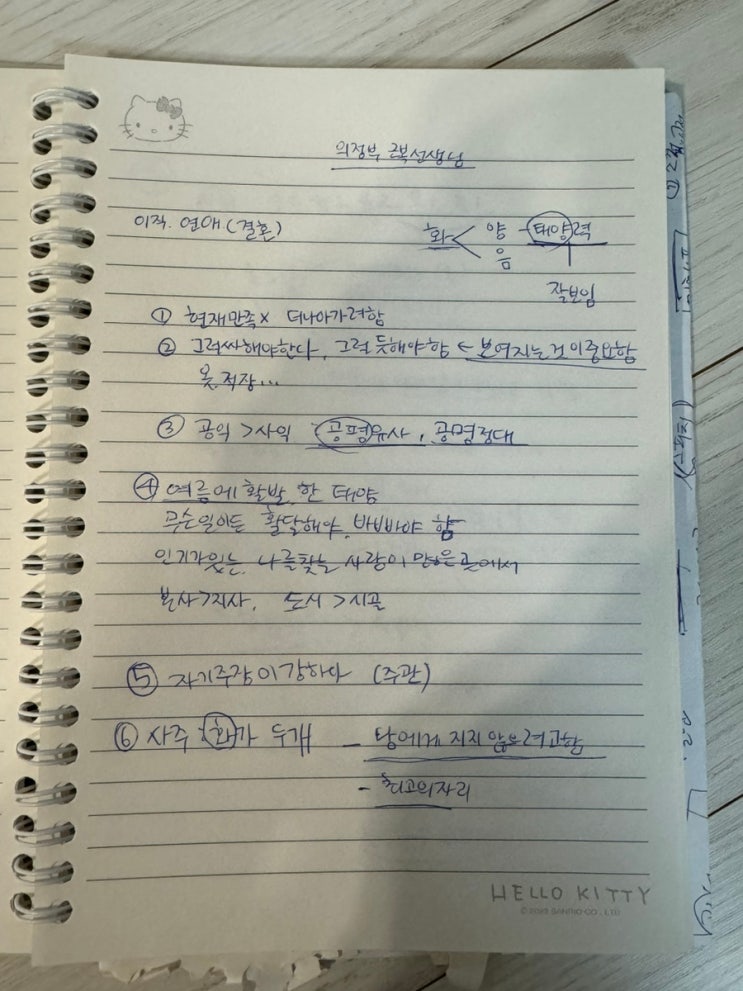 의정부 군복선생님
이직. 연애(결혼)
화 < 양 - 태양력
음
잘보임
① 현재만족x 더나아가려함
② 그럴싸해야한다, 그럴듯해야함 ← 보여지는것이중요함
옷, 직장...
③ 공익 > 사익 : 공평유사, 공명정대
④ 여름에 활발한 태양
무슨일이든 활달해야, 바빠야 함
인기가있는, 나를찾는 사람이 많은곳에서
본사>지사, 도시 > 시골
⑤ 자기주장이강하다 (주관)
⑥ 사주 : 화가 두개 - 남에게 지지않으려고함
- 최고의자리
HELLO KITTY